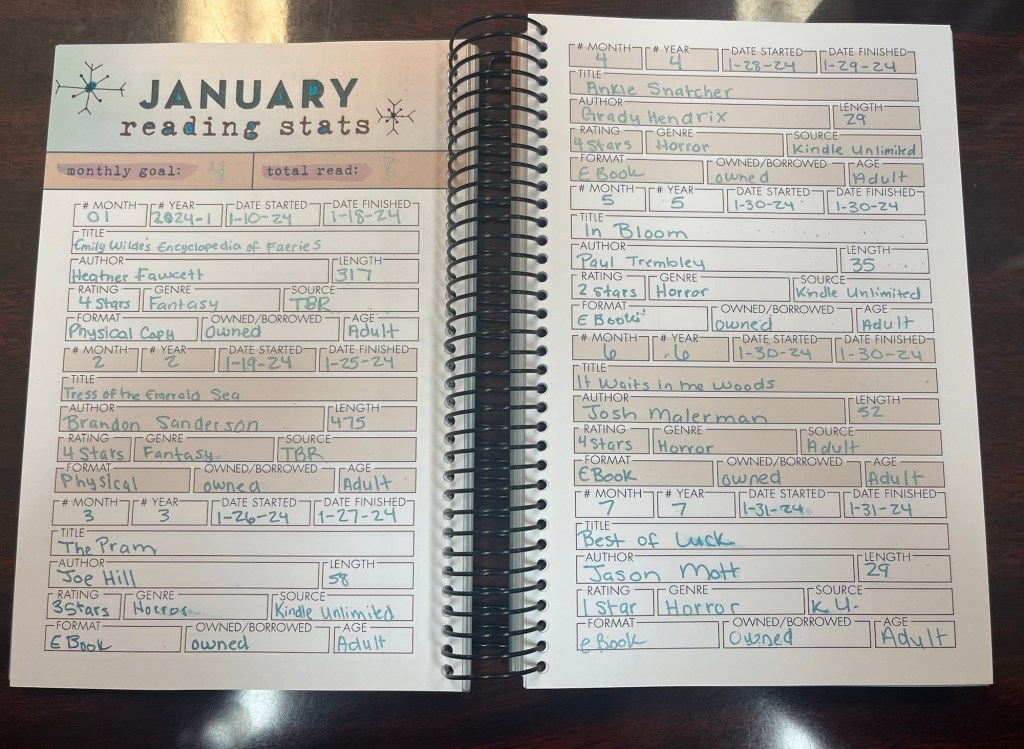 JANUARY
reading stats
monthly goal: 4 total read: 7
# MONTH # YEAR DATE STARTED DATE FINISHED
01 2024-1 1-10-24 1-18-24
TITLE
Emily Wilde's Encyclopedia of Faeries
AUTHOR LENGTH
Heather Fawcett 317
RATING GENRE SOURCE
4 Stars Fantasy TBR
FORMAT OWNED/BORROWED AGE
Physical Copy Owned Adult
# MONTH # YEAR DATE STARTED DATE FINISHED
2 2 1-19-24 1-25-24
TITLE
Tress of the Emerald Sea
AUTHOR LENGTH
Brandon Sanderson 475
RATING GENRE SOURCE
4 Stars Fantasy TBR
FORMAT OWNED/BORROWED AGE
Physical owned Adult
# MONTH # YEAR DATE STARTED DATE FINISHED
3 3 1-26-24 1-27-24
TITLE
The Pram
AUTHOR LENGTH
Joe Hill 58
RATING GENRE SOURCE
3 Stars Horror Kindle Unlimited
FORMAT OWNED/BORROWED AGE
E Book owned Adult
# MONTH # YEAR DATE STARTED DATE FINISHED
4 4 1-28-24 1-29-24
TITLE
Ankle Snatcher
AUTHOR LENGTH
Grady Hendrix 29
RATING GENRE SOURCE
4 Stars Horror Kindle Unlimited
FORMAT OWNED/BORROWED AGE
E Book owned Adult
# MONTH # YEAR DATE STARTED DATE FINISHED
5 5 1-30-24 1-30-24
TITLE
In Bloom
AUTHOR LENGTH
Paul Trembley 35
RATING GENRE SOURCE
2 Stars Horror Kindle Unlimited
FORMAT OWNED/BORROWED AGE
E Book owned Adult
# MONTH # YEAR DATE STARTED DATE FINISHED
6 6 1-30-24 1-30-24
TITLE
It Waits in the woods
AUTHOR LENGTH
Josh Malerman 52
RATING GENRE SOURCE
4 Stars Horror Adult
FORMAT OWNED/BORROWED AGE
E Book owned Adult
# MONTH # YEAR DATE STARTED DATE FINISHED
7 7 1-31-24 1-31-24
TITLE
Best of Luck
AUTHOR LENGTH
Jason Mott 29
RATING GENRE SOURCE
1 Star Horror K.U.
FORMAT OWNED/BORROWED AGE
eBook Owned Adult